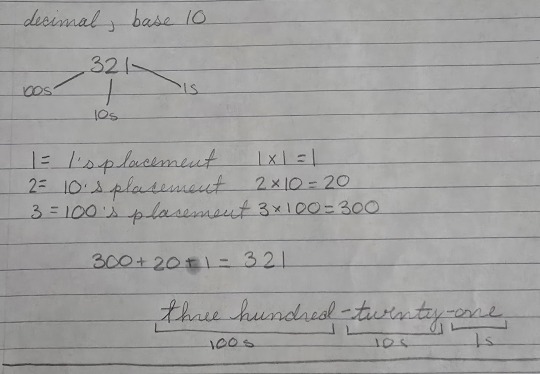 decimal, base 10
321
100s 1s
10s
1 = 1's placement 1 x 1 = 1
2 = 10's placement 2 x 10 = 20
3 = 100's placement 3 x 100 = 300
300 + 20 + 1 = 321
three hundred - twenty - one
100s 10s 1s